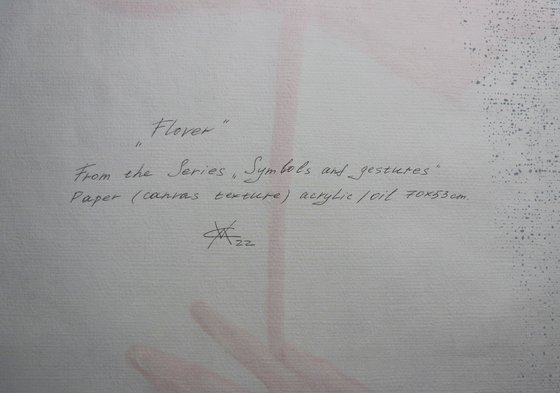 „Flover"
From the Series „Symbols and gestures"
Paper (canvas texture) acrylic/oil 70x53cm.
22